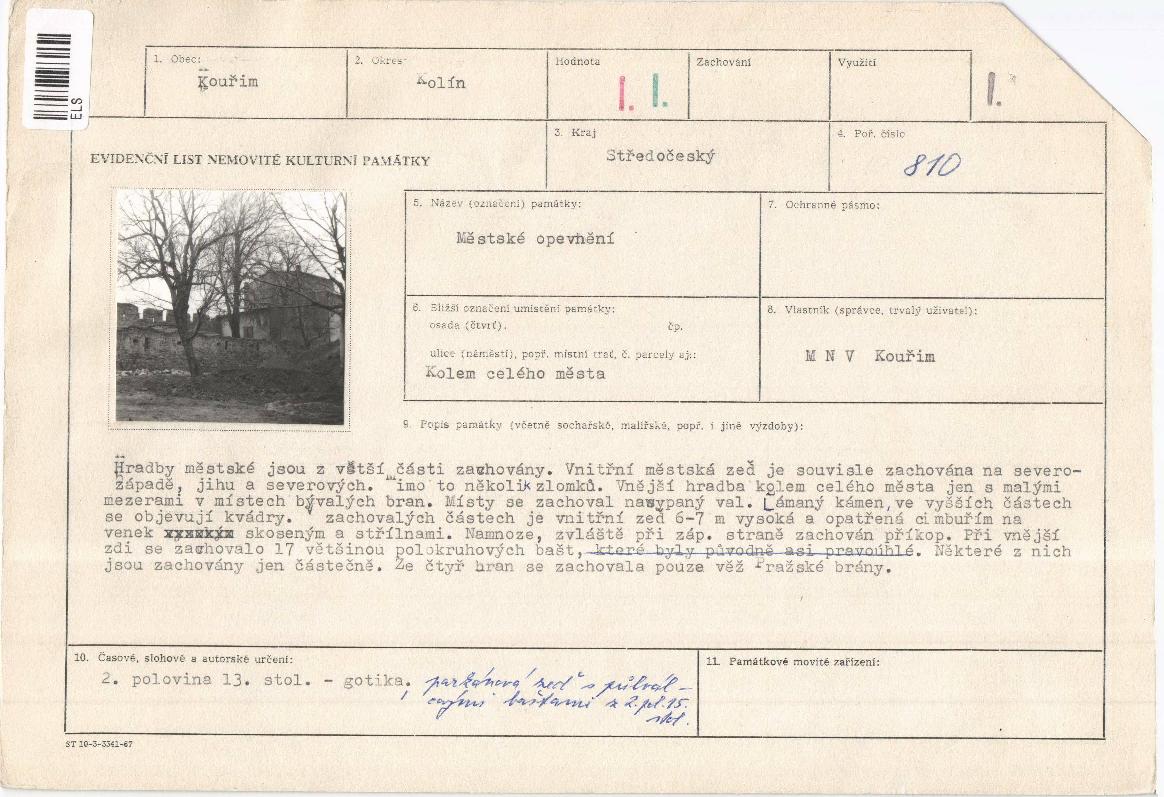 ELS
1. Obec:
Kouřim
2. Okres
Kolín
Hodnota
I. I.
Zachování
Využití
I.
EVIDENČNÍ LIST NEMOVITÉ KULTURNÍ PAMÁTKY
3. Kraj
Středočeský
4. Poř. číslo
810
5. Název (označení) památky:
Městské opevnění
7. Ochranné pásmo:
6. Bližší označení umístění památky:
osada (čtvrť). čp.
ulice (náměstí), popř. místní trať, č. parcely aj.:
Kolem celého města
8. Vlastník (správce, trvalý uživatel):
M N V Kouřim
9. Popis památky (včetně sochařské, malířské, popř. i jiné výzdoby):
Hradby městské jsou z větší části zachovány. Vnitřní městská zeď je souvisle zachována na severo-
západě, jihu a severových. Mimo to několik zlomků. Vnější hradba kolem celého města jen s malými
mezerami v místech bývalých bran. Místy se zachoval nasypaný val. Lámaný kámen, ve vyšších částech
se objevují kvádry. V zachovalých částech je vnitřní zeď 6-7 m vysoká a opatřená cimbuřím na
venek skoseným a střílnami. Namnoze, zvláště při záp. straně zachován příkop. Při vnější
zdi se zachovalo 17 většinou polokruhových bašt, které byly původně asi pravoúhlé. Některé z nich
jsou zachovány jen částečně. Ze čtyř bran se zachovala pouze věž Pražské brány.
10. Časové, slohové a autorské určení:
2. polovina 13. stol. - gotika, parkánová zeď s půlvál-
covými baštami z 2. pol. 15.
stol.
11. Památkové movité zařízení:
ST 10-3-3341-67